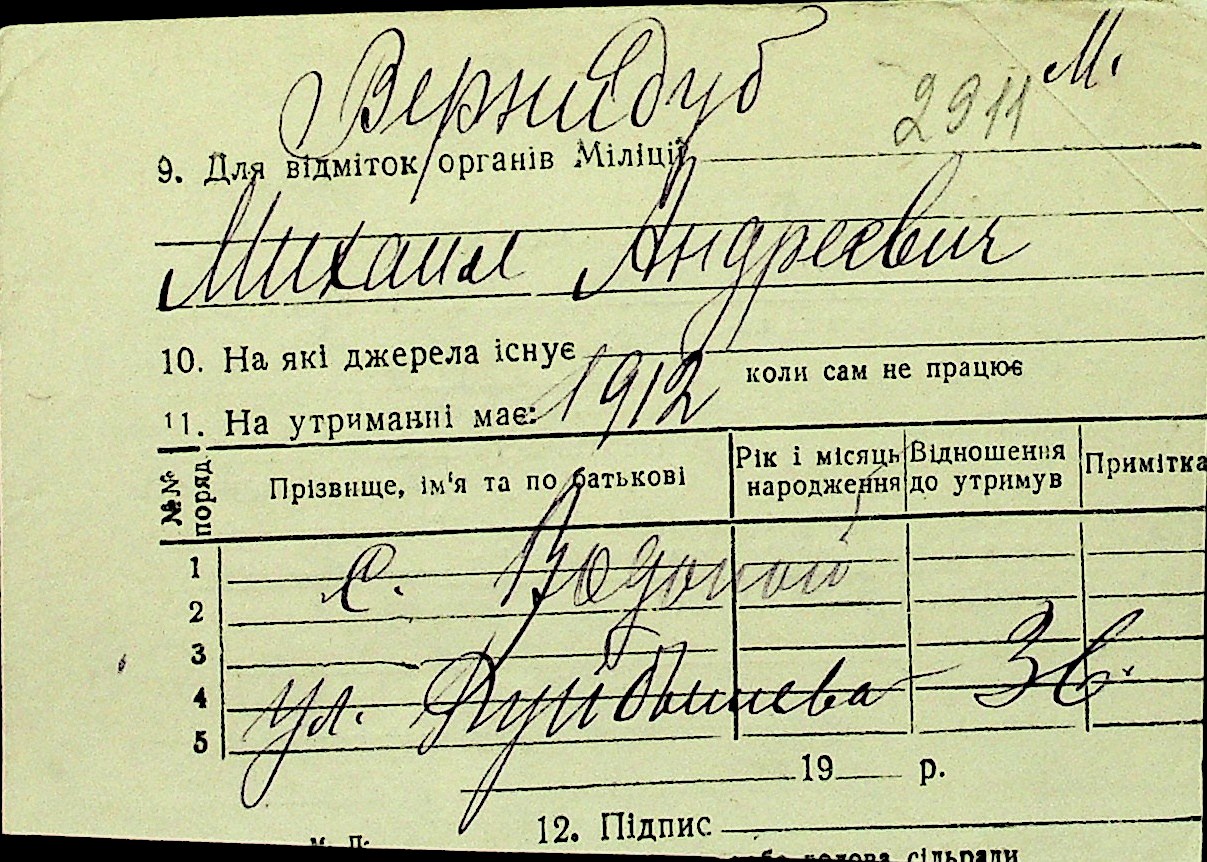 Вернидуб 2911 М.
9. Для відміток органів Міліції
Михаил Андреевич
10. На які джерела існує
коли сам не працює
1912
11. На утриманні має:
№№ поряд. Прізвище, ім'я та по батькові Рік і місяць народження Відношення до утримув Примітка
1
с. Водопой
2
3
4 ул. Куйбышева - 3 в.
5
19 р.
12. Підпис
М. П.
голова сільради